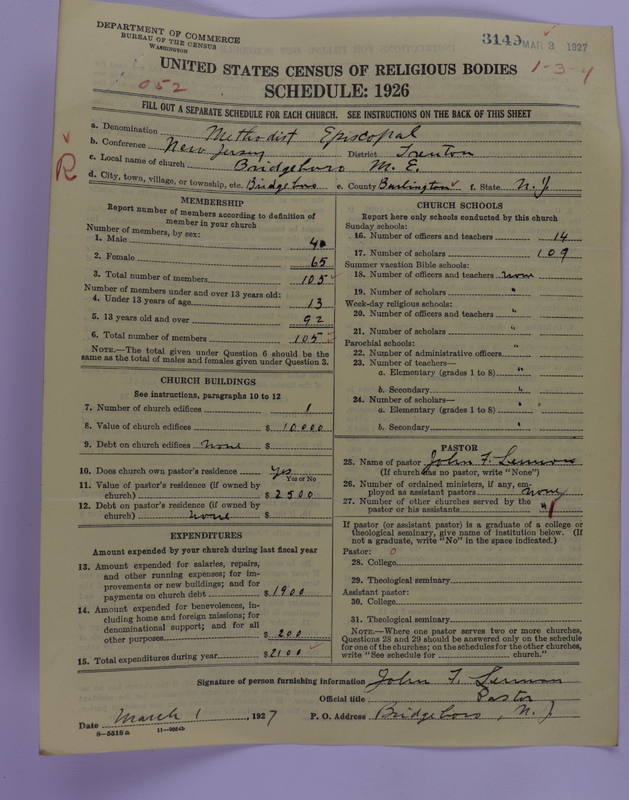 DEPARTMENT OF COMMERCE
BUREAU OF THE CENSUS
WASHINGTON
3149 MAR 3 1927
UNITED STATES CENSUS OF RELIGIOUS BODIES
1-3-4
052
SCHEDULE: 1926
FILL OUT A SEPARATE SCHEDULE FOR EACH CHURCH. SEE INSTRUCTIONS ON THE BACK OF THIS SHEET
a. Denomination Methodist Episcopal
b. Conference New Jersey District Trenton
R
c. Local name of church Bridgeboro M. E.
d. City, town, village, or township, etc. Bridgeboro e. County Burlington f. State N. J.
MEMBERSHIP
Report number of members according to definition of
member in your church
Number of members, by sex:
1. Male 40
2. Female 65
3. Total number of members 105
Number of members under and over 13 years old:
4. Under 13 years of age 13
5. 13 years old and over 92
6. Total number of members 105
NOTE.—The total given under Question 6 should be
same as the total of males and females given under Question 3.
CHURCH BUILDINGS
See instructions, paragraphs 10 to 12
7. Number of church edifices 1
8. Value of church edifices $ 10000
9. Debt on church edifices none $
10. Does church own pastor's residence yes
Yes or No
11. Value of pastor's residence (if owned by
church) $ 2500
12. Debt on pastor's residence (if owned by
church) none $
EXPENDITURES
Amount expended by your church during last fiscal year
13. Amount expended for salaries, repairs,
and other running expenses; for im-
provements or new buildings; and for
payments on church debt $ 1900
14. Amount expended for benevolences, in-
cluding home and foreign missions; for
denominational support; and for all
other purposes $ 200
15. Total expenditures during year $ 2100
CHURCH SCHOOLS
Report here only schools conducted by this church
Sunday schools:
16. Number of officers and teachers 14
17. Number of scholars 109
Summer vacation Bible schools:
18. Number of officers and teachers none
19. Number of scholars "
Week-day religious schools:
20. Number of officers and teachers "
21. Number of scholars "
Parochial schools:
22. Number of administrative officers "
23. Number of teachers—
a. Elementary (grades 1 to 8) "
b. Secondary "
24. Number of scholars—
a. Elementary (grades 1 to 8) "
b. Secondary "
PASTOR
25. Name of pastor John F.
(If church has no pastor, write "None")
26. Number of ordained ministers, if any, em-
ployed as assistant pastors none
27. Number of other churches served by the
pastor or his assistants "
If pastor (or assistant pastor) is a graduate of a college or
theological seminary, give name of institution below. (If
not a graduate, write "No" in the space indicated.)
Pastor: 0
28. College
29. Theological seminary
Assistant pastor:
30. College
31. Theological seminary
NOTE.—Where one pastor serves two or more churches,
Questions 28 and 29 should be answered only on the schedule
for one of the churches; on the schedules for the other churches,
write "See schedule for church."
Signature of person furnishing information John F.
Official title Pastor
Date March 1, 1927 P. O. Address Bridgeboro, N. J.
8-5518a